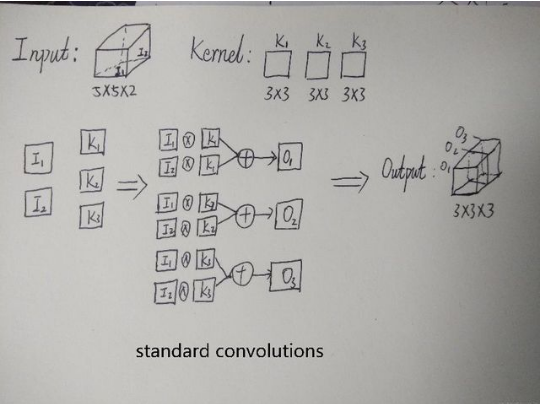 Input: I₁ I₂ Kernel: K₁ K₂ K₃
5X5X2 3X3 3X3 3X3
I₁ K₁
I₂ K₂
K₃
⇒
I₁ ⊗ K₁
I₂ ⊗ K₁ ⊕ → O₁
I₁ ⊗ K₂
I₂ ⊗ K₂ ⊕ → O₂
I₁ ⊗ K₃
I₂ ⊗ K₃ ⊕ → O₃
⇒ Output: O₁ O₂ O₃
3X3X3
standard convolutions